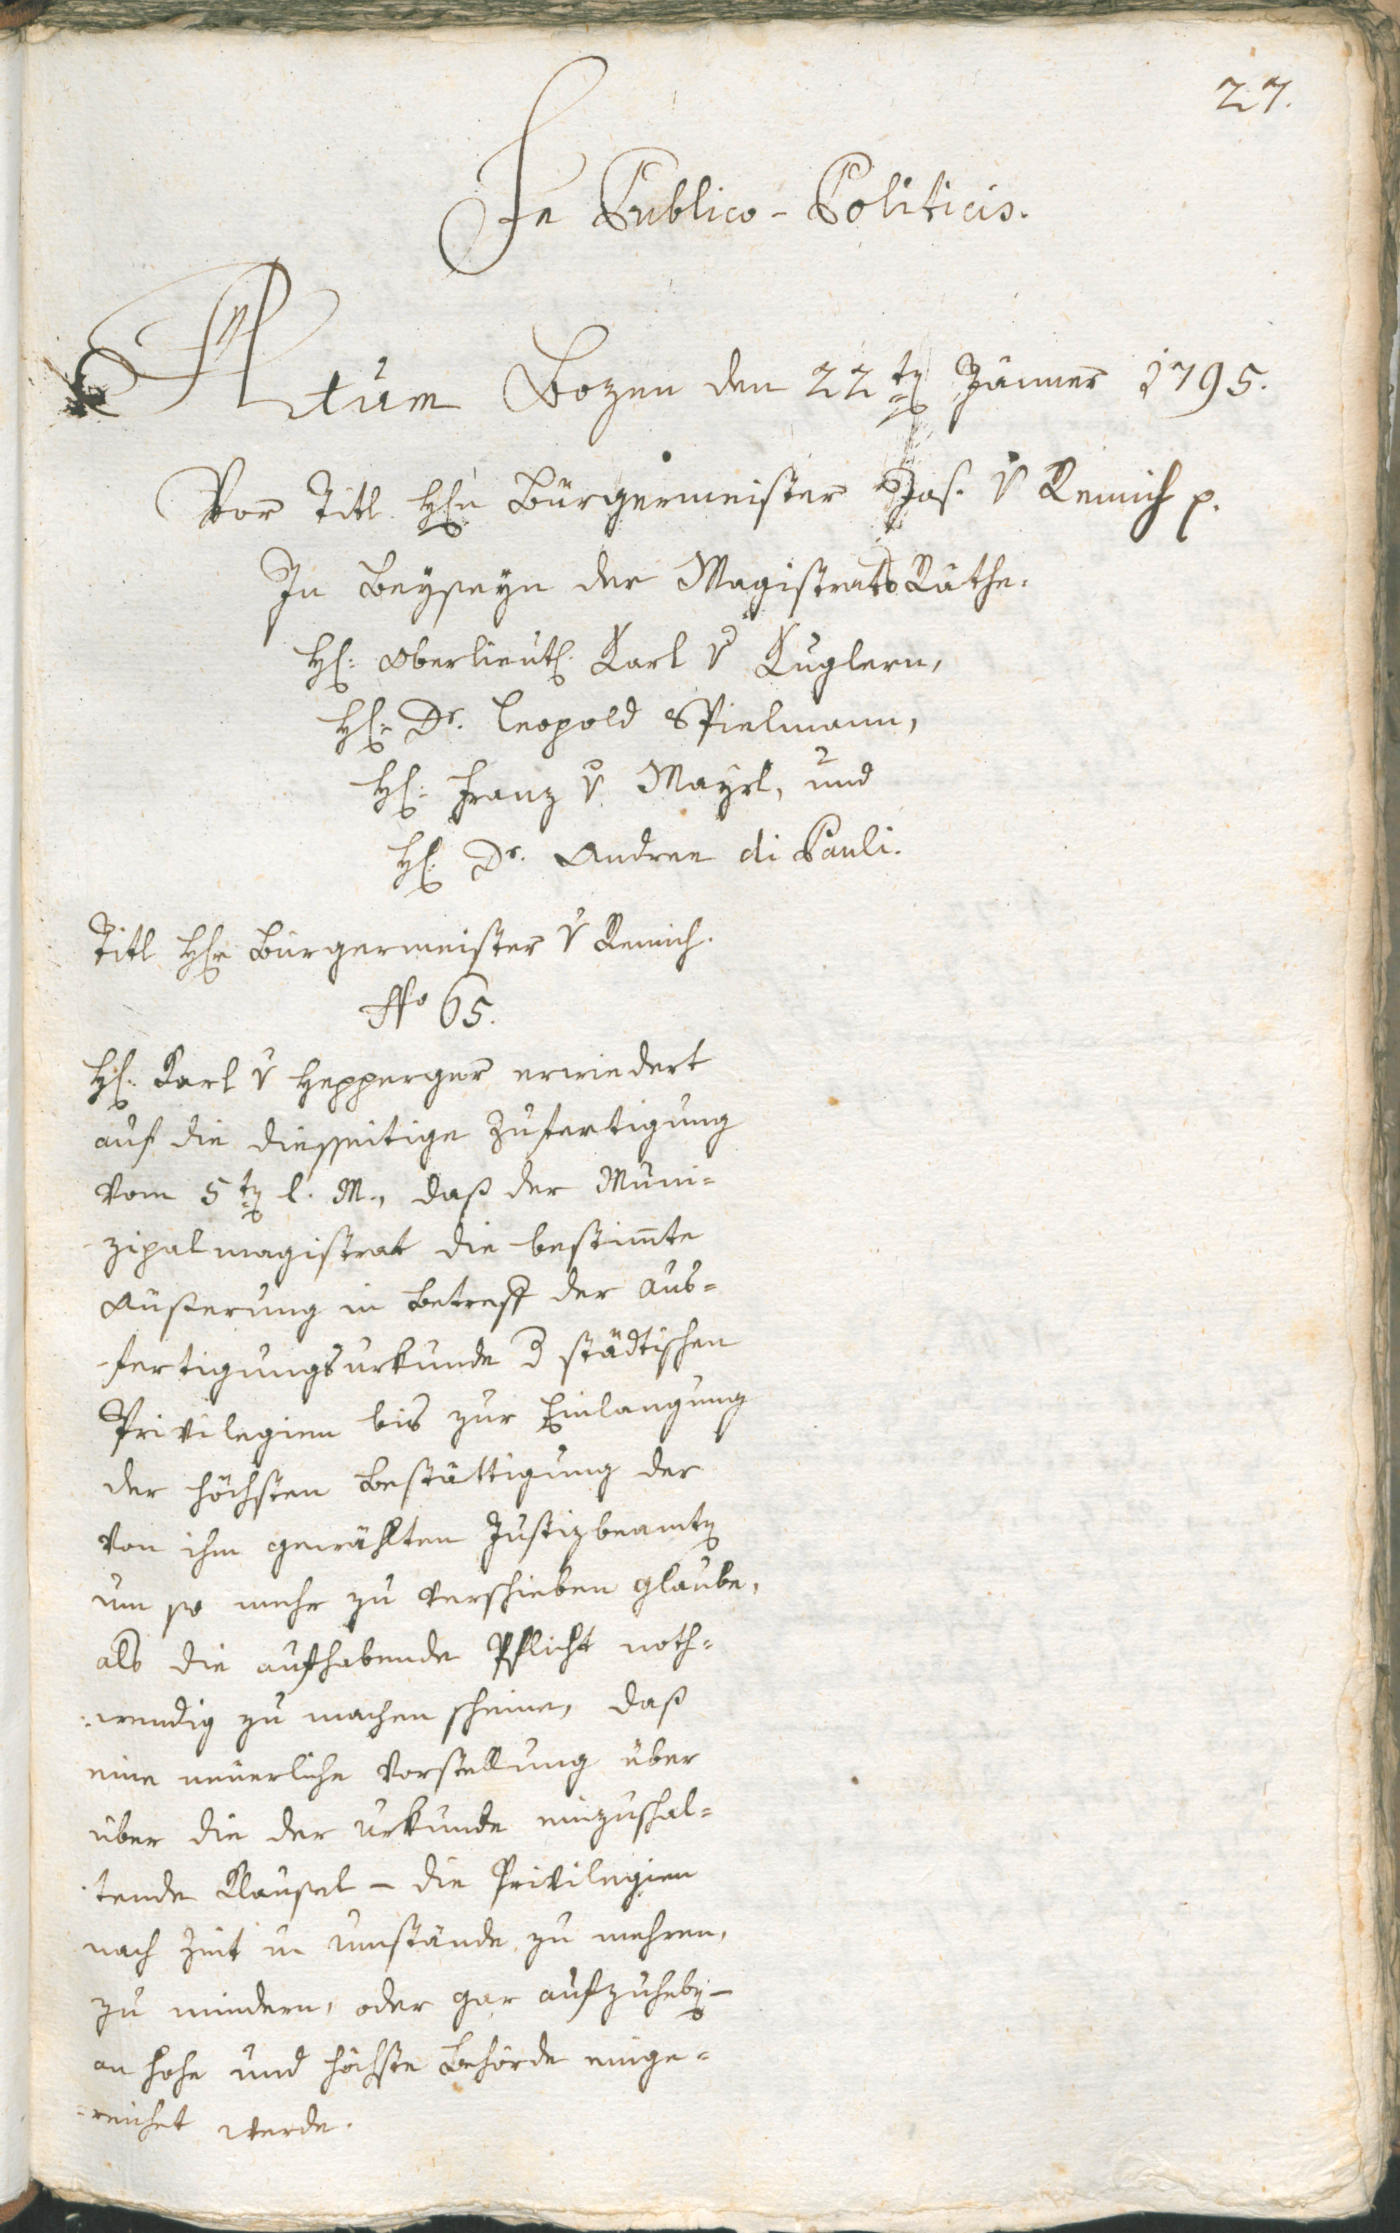 27.
In Publico-Politicis.
Actum Bozen den 22ten Jänner 1795.
Vor Titl. Hrn Bürgermeister Jos. v Remich p.
In Beyseyn der Magistrats Räthe.
H: Oberlieut. Karl v Kuglern,
H: Dr. Leopold Spielmann,
H: Franz v Mayrl, und
H: Dr. Andree di Pauli.
Titl Hr Bürgermeister v Remich.
No 65.
H: Karl v Hepperger erwiedert
auf die diesseitige Zufertigung
vom 5ten l. M., daß der Muni=
zipalmagistrat die bestimte
Äusserung in Betreff der Aus=
fertigungsurkunde d städtischen
Privilegien bis zur Einlangung
der höchsten Bestättigung der
von ihm gewählten Justizbeamten
um so mehr zu verschieben glaube,
als die aufhabende Pflicht noth=
wendig zu machen scheine, daß
eine neuerliche Vorstellung über
über die der Urkunde einzuschal=
tende Klausel – die Privilegien
nach Zeit u Umstände zu mehren,
zu mindern, oder gar aufzuheben –
an hohe und höchste Behörde einge=
reichet werde.